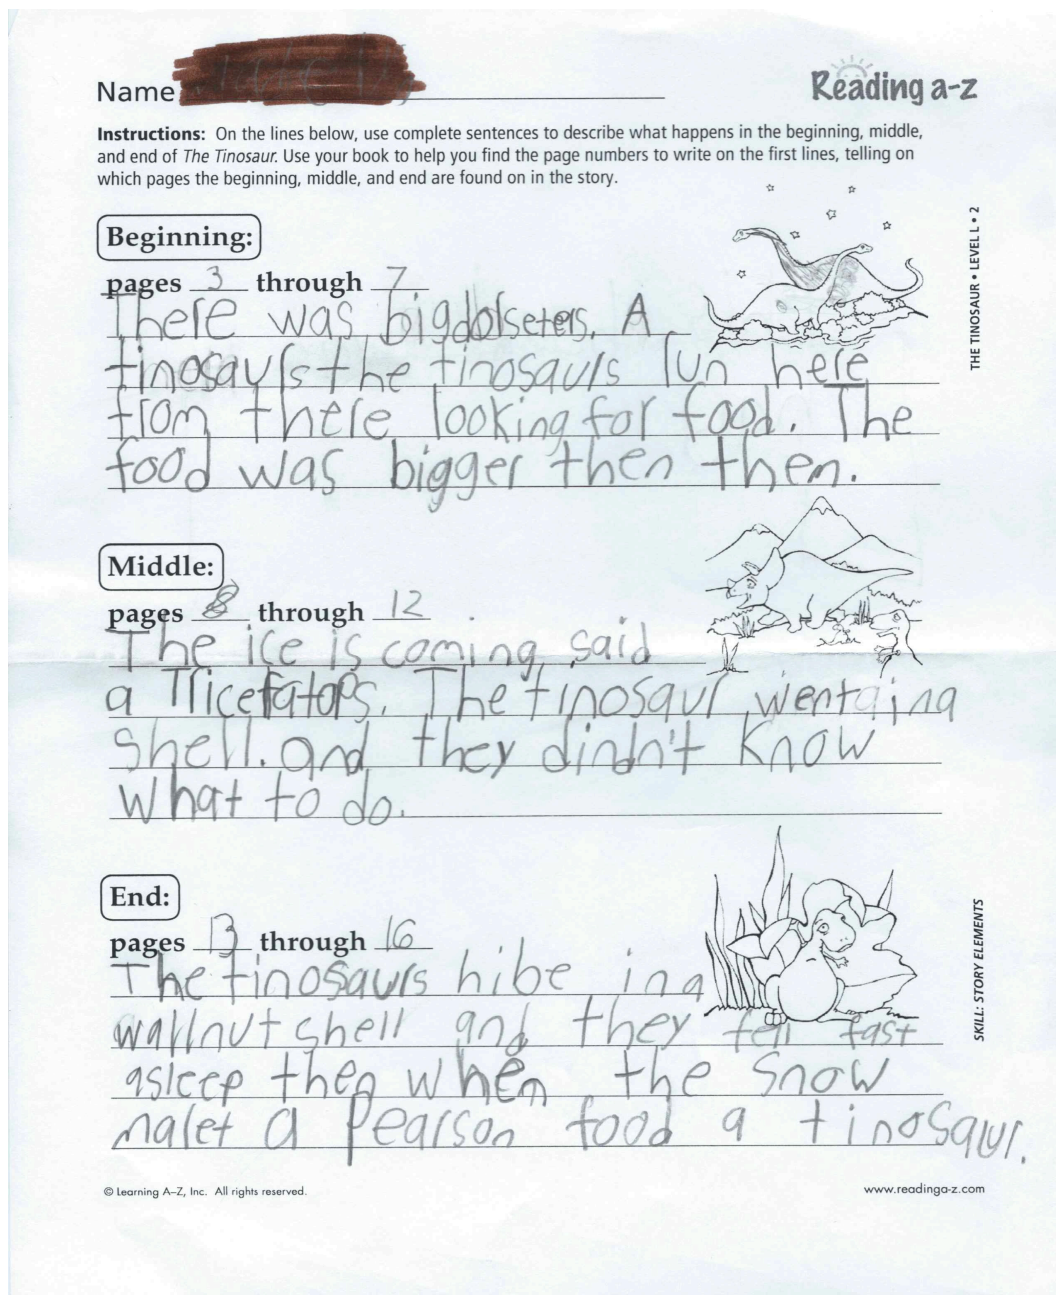 Name
Reading a-z
Instructions: On the lines below, use complete sentences to describe what happens in the beginning, middle,
and end of The Tinosaur. Use your book to help you find the page numbers to write on the first lines, telling on
which pages the beginning, middle, and end are found on in the story.
THE TINOSAUR • LEVEL L • 2
Beginning:
pages 3 through 7
There was big . A
tinosaurs the tinosaurs run here
from there looking for food. The
food was bigger then them.
Middle:
pages 8 through 12
The ice is coming, said
a Tricefatops. The tinosaur went a ina
shell. and they dindn't know
what to do.
End:
pages 13 through 16
The tinosaurs hibe in a
wallnut shell and they fell fast
asleep then when the snow
malet a pearson food a tinosaur.
SKILL: STORY ELEMENTS
© Learning A–Z, Inc. All rights reserved.
www.readinga-z.com